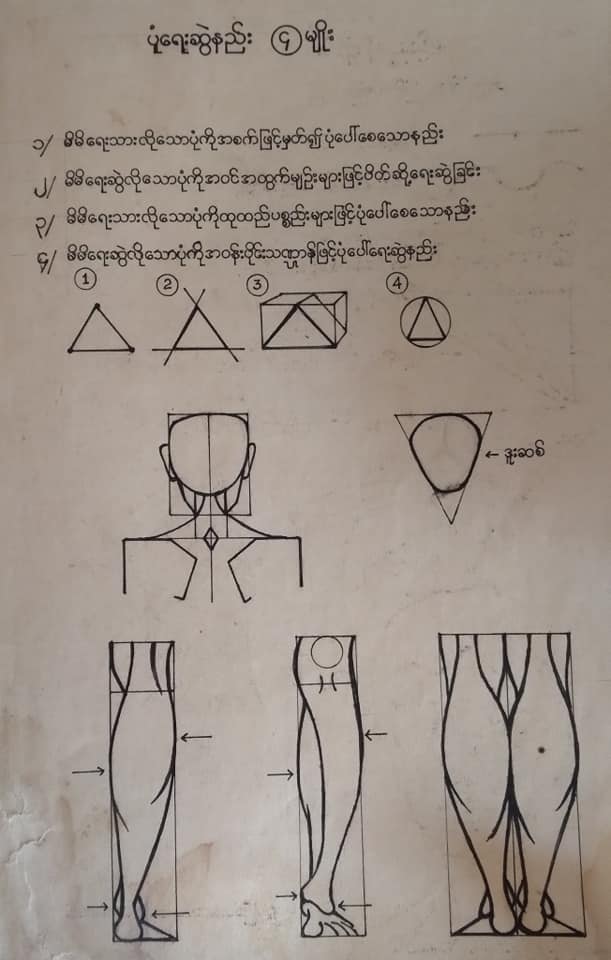 ပုံရေးဆွဲနည်း ၄ မျိုး
၁/ မိမိရေးသားလိုသောပုံကိုအစက်ဖြင့်မှတ်၍ပုံပေါ်စေသောနည်း
၂/ မိမိရေးဆွဲလိုသောပုံကိုအဝင်အထွက်မျဉ်းများဖြင့်ပိတ်ဆို့ရေးဆွဲခြင်း
၃/ မိမိရေးသားလိုသောပုံကိုထုထည်ပစ္စည်းများဖြင့်ပုံပေါ်စေသောနည်း
၄/ မိမိရေးဆွဲလိုသောပုံကိုအဝန်းဝိုင်းသဏ္ဌာန်ဖြင့်ပုံပေါ်ရေးဆွဲနည်း
1 2 3 4
ဒူးဆစ်